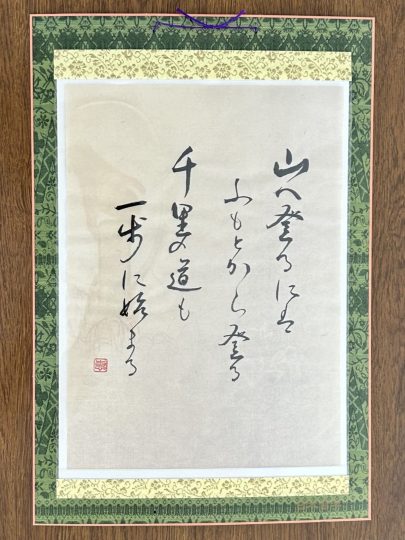 山へ登るには
ふもとから登る
千里の道も
一歩に始まる